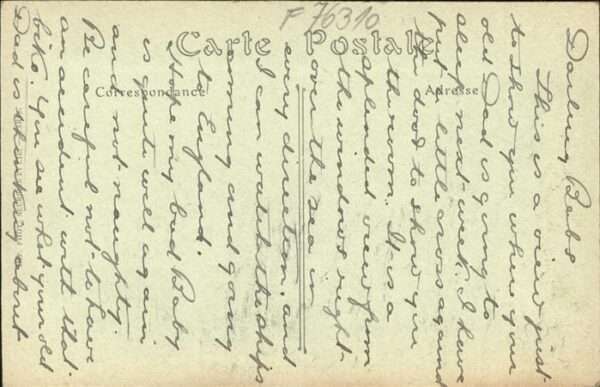 F 76310
Carte Postale
Correspondance
Adresse
Darling Babs
This is a view just
to show you where you
old Dad is going to
sleep next week. I have
put a little cross against
the door to show you
the room. It is a
splendid view from
the windows right
over the sea in
every direction, and
I can watch the ships
coming and going
to England.
Hope my bad Baby
is quite well again
and not naughty.
Be careful not to have
an accident with that
bike. You see what your old
Dad is thinking about